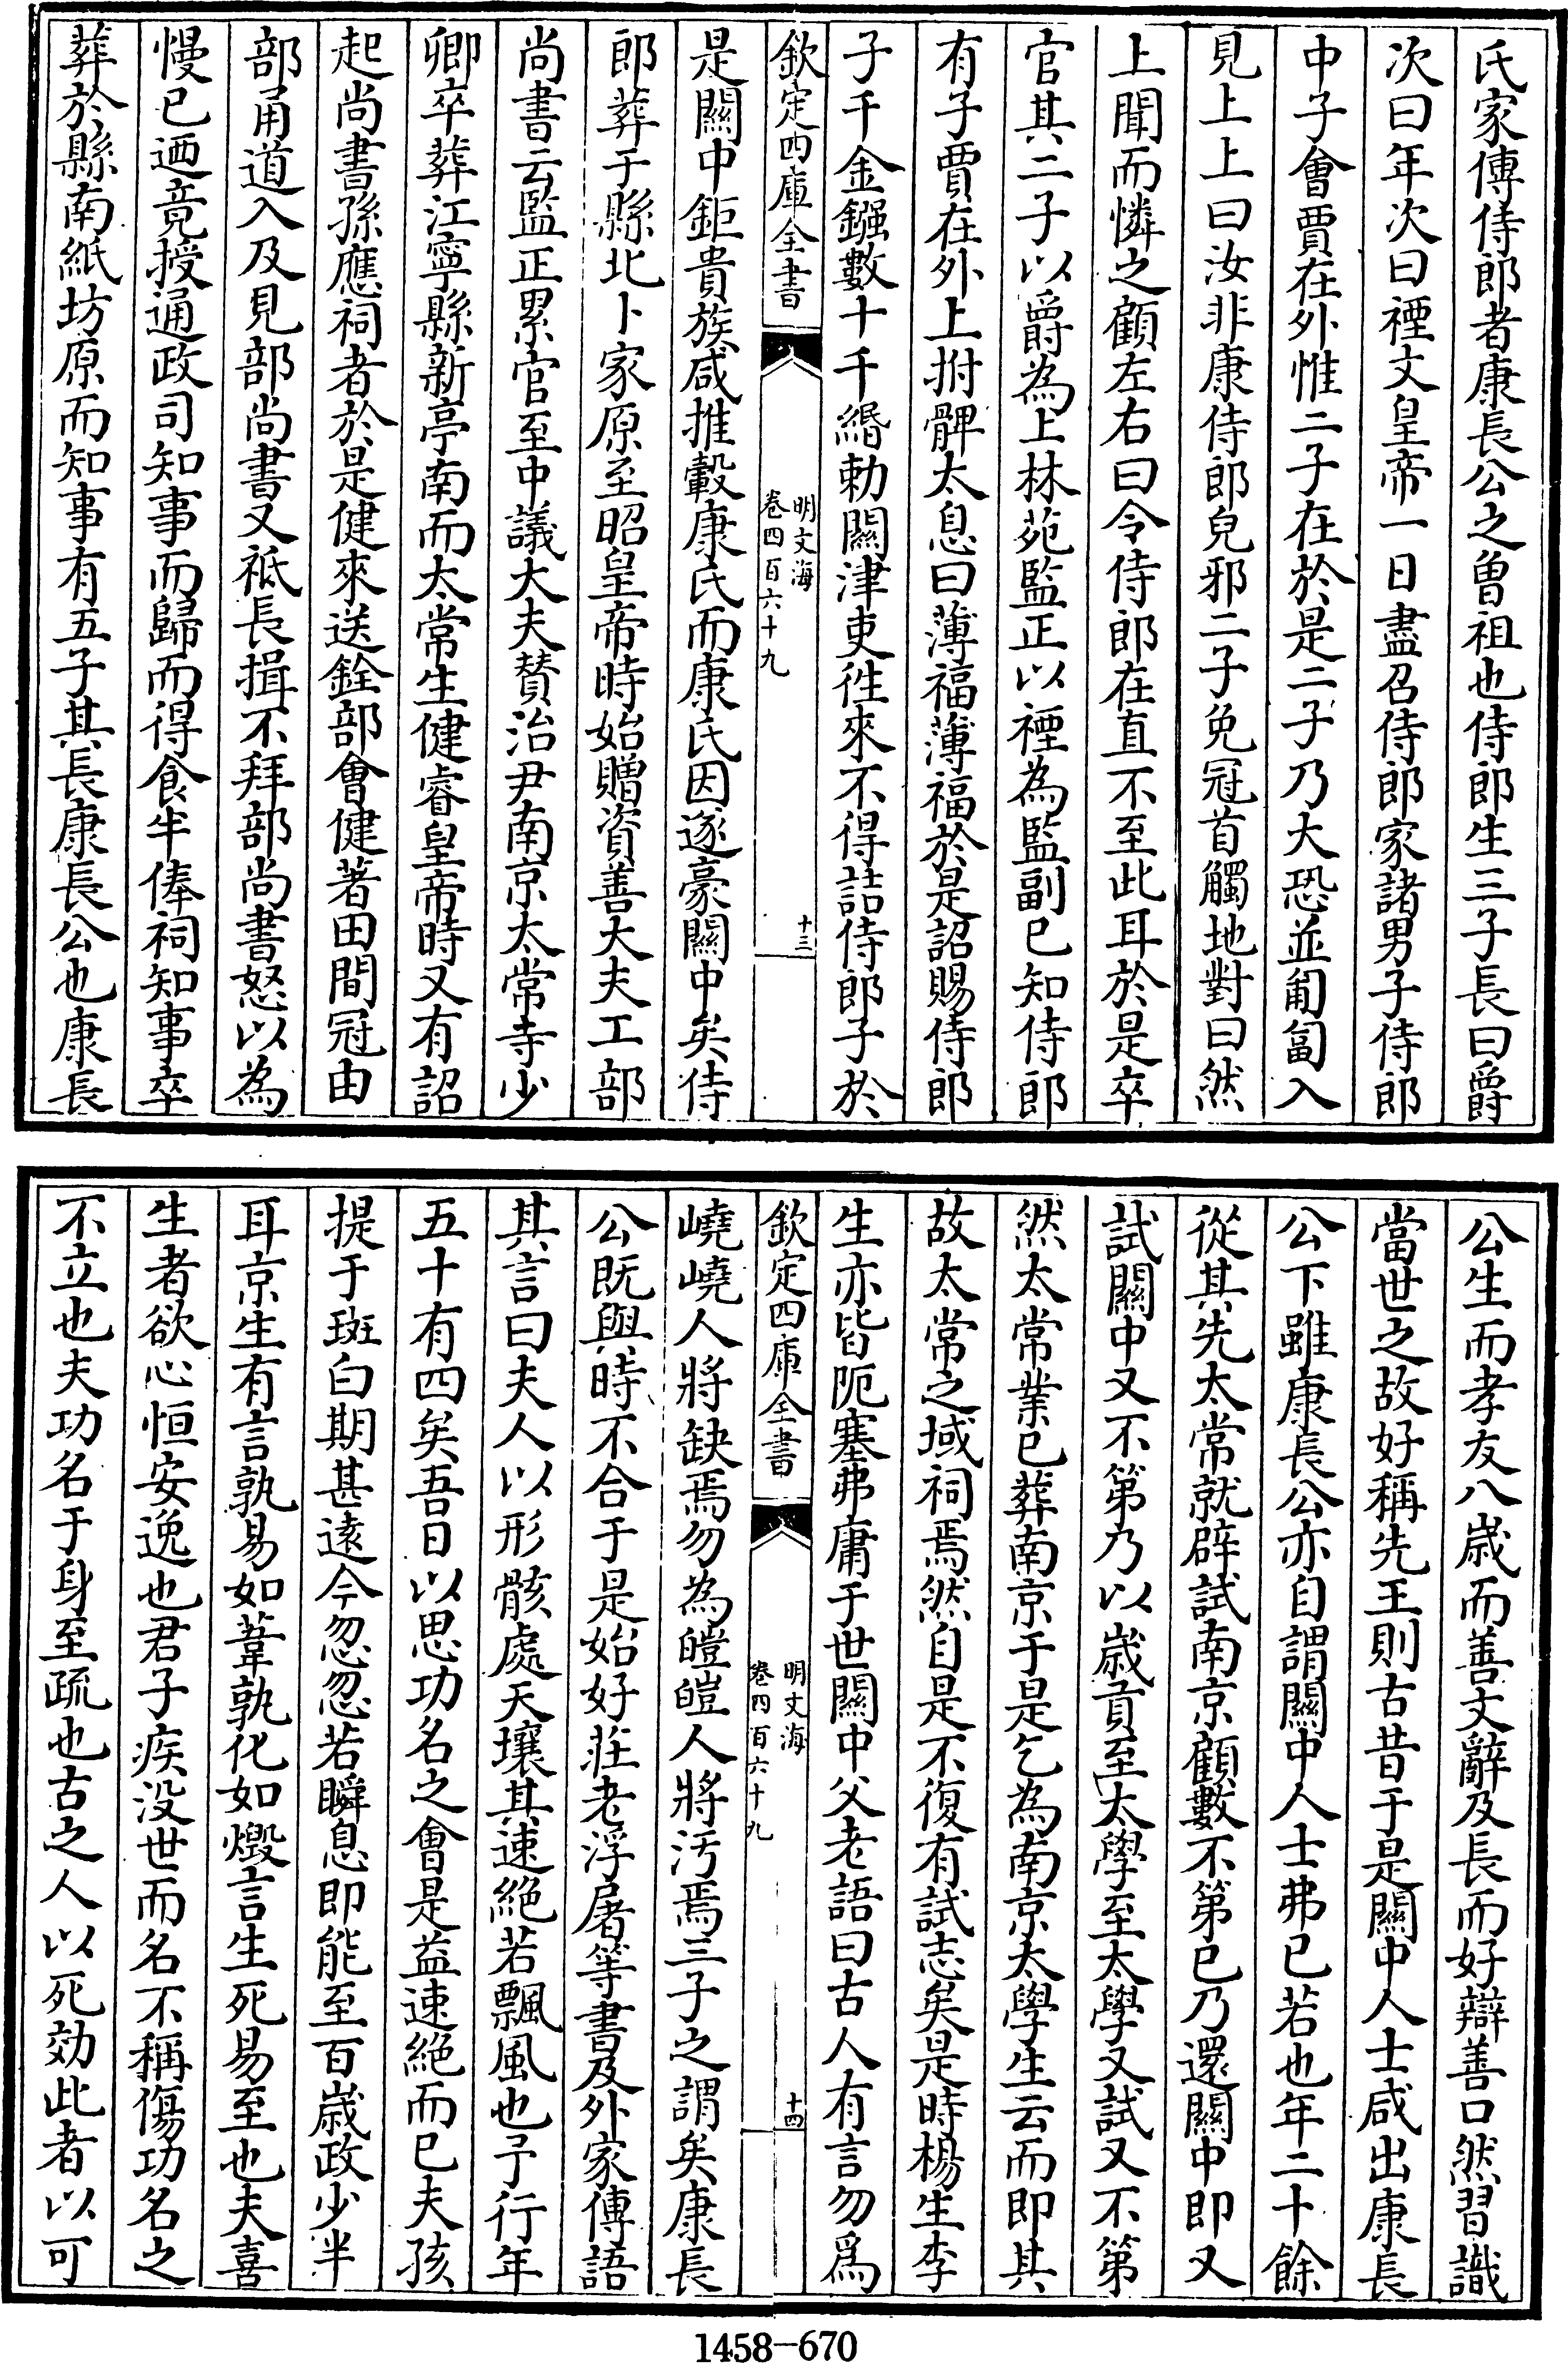 氏家傳侍郎者康長公之曾祖也侍郎生三子長曰爵
次曰年次曰禋文皇帝一日盡召侍郎家諸男子侍郎
中子會賈在外惟二子在於是二子乃大恐並匍匐入
見上上曰汝非康侍郎兒邪二子免冠首觸地對曰然
上聞而憐之顧左右曰令侍郎在直不至此耳於是卒
官其二子以爵為上林苑監正以禋為監副已知侍郎
有子賈在外上拊髀太息曰薄福薄福於是詔賜侍郎
子千金鏹數十千緡勅關津吏徃來不得詰侍郎子於
欽定四庫全書
明文海
卷四百六十九
十三
是關中鉅貴族咸推轂康氏而康氏因遂豪關中矣侍
郎葬于縣北卜家原至昭皇帝時始贈資善大夫工部
尚書云監正累官至中議大夫贊治尹南京太常寺少
卿卒葬江寧縣新亭南而太常生健睿皇帝時又有詔
起尚書孫應祠者於是健來送銓部會健著田間冠由
部甬道入及見部尚書又袛長揖不拜部尚書怒以為
慢已迺竟授通政司知事而歸而得食半俸祠知事卒
葬於縣南紙坊原而知事有五子其長康長公也康長
公生而孝友八歲而善文辭及長而好辯善口然習識
當世之故好稱先王則古昔于是關中人士咸出康長
公下雖康長公亦自謂關中人士弗已若也年二十餘
從其先太常就辟試南京顧數不第已乃還關中即又
試關中又不第乃以歲貢至太學至太學又試又不第
然太常業已葬南京于是乞為南京太學生云而即其
故太常之域祠焉然自是不復有試志矣是時楊生李
生亦皆阨塞弗庸于世關中父老語曰古人有言勿為
欽定四庫全書
明文海
卷四百六十九
十四
嶢嶢人將缺焉勿為皚皚人將汚焉三子之謂矣康長
公既與時不合于是始好莊老浮屠等書及外家傳語
其言曰夫人以形骸處天壤其速絕若飄風也予行年
五十有四矣吾日以思功名之會是益速絕而已夫孩
提于斑白期甚遠今忽忽若瞬息即能至百歲政少半
耳京生有言孰易如葦孰化如燬言生死易至也夫喜
生者欲心恒安逸也君子疾没世而名不稱傷功名之
不立也夫功名于身至疏也古之人以死効此者以可
1458-670